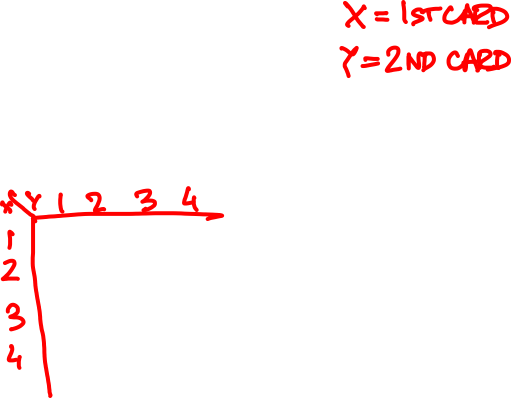 X = 1ST CARD
Y = 2ND CARD
X Y 1 2 3 4
1
2
3
4